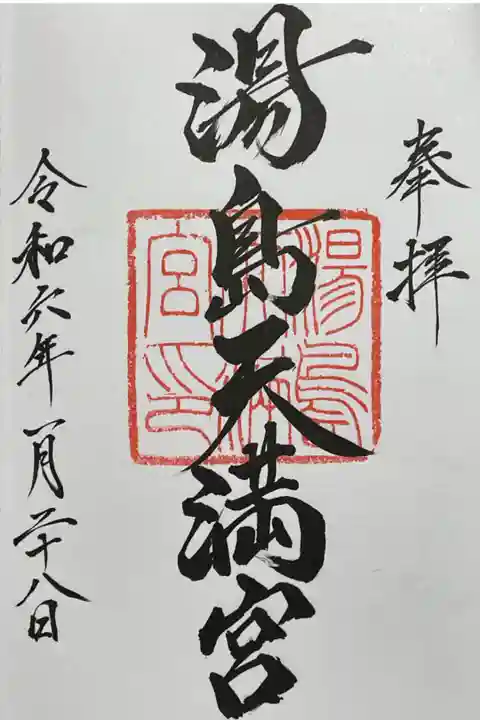 奉拝
湯島天満宮
令和六年八月二十八日
湯島
宮印